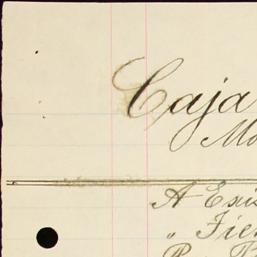 Caja
Mo
A Exis
" Fie